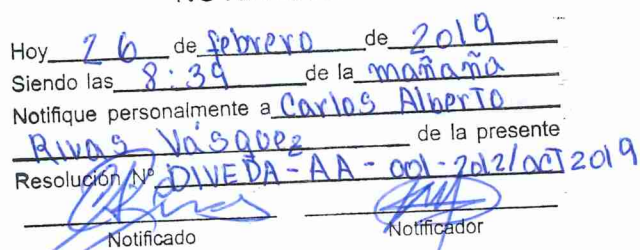 Hoy 26 de febrero de 2019
Siendo las 8:39 de la mañana
Notifique personalmente a Carlos Alberto
Rivas Vásquez de la presente
Resolución Nº DIVEDA-AA-001-2012/act 2019
Notificado Notificador